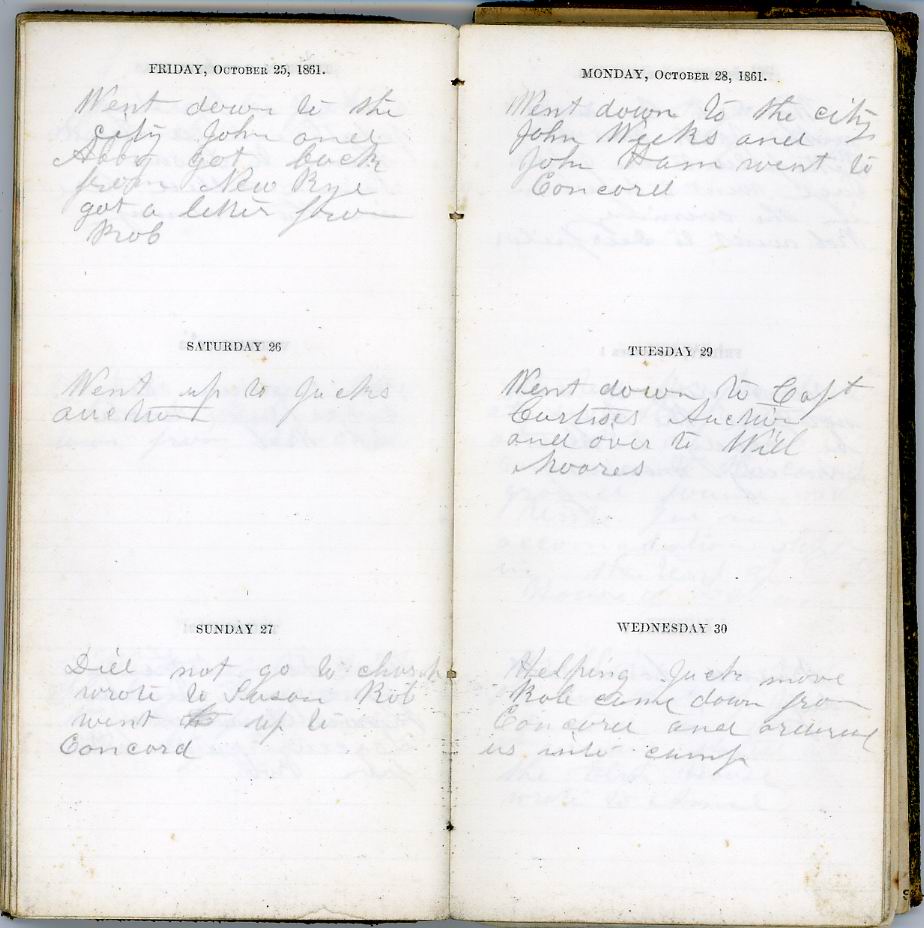 FRIDAY, OCTOBER 25, 1861.
Went down to the
city John and
Abby got back
from New Rye
got a letter from
Rob
SATURDAY 26
Went up to Jacks
auction
SUNDAY 27
Did not go to church
wrote to Susan Rob
went up to
Concord
MONDAY, OCTOBER 28, 1861.
Went down to the city
John Weeks and
John Ham went to
Concord
TUESDAY 29
Went down to Capt
Curtises Auction
and over to Will
Moores
WEDNESDAY 30
Helping Jack move
Rob came down from
Concord and ordered
us into camp